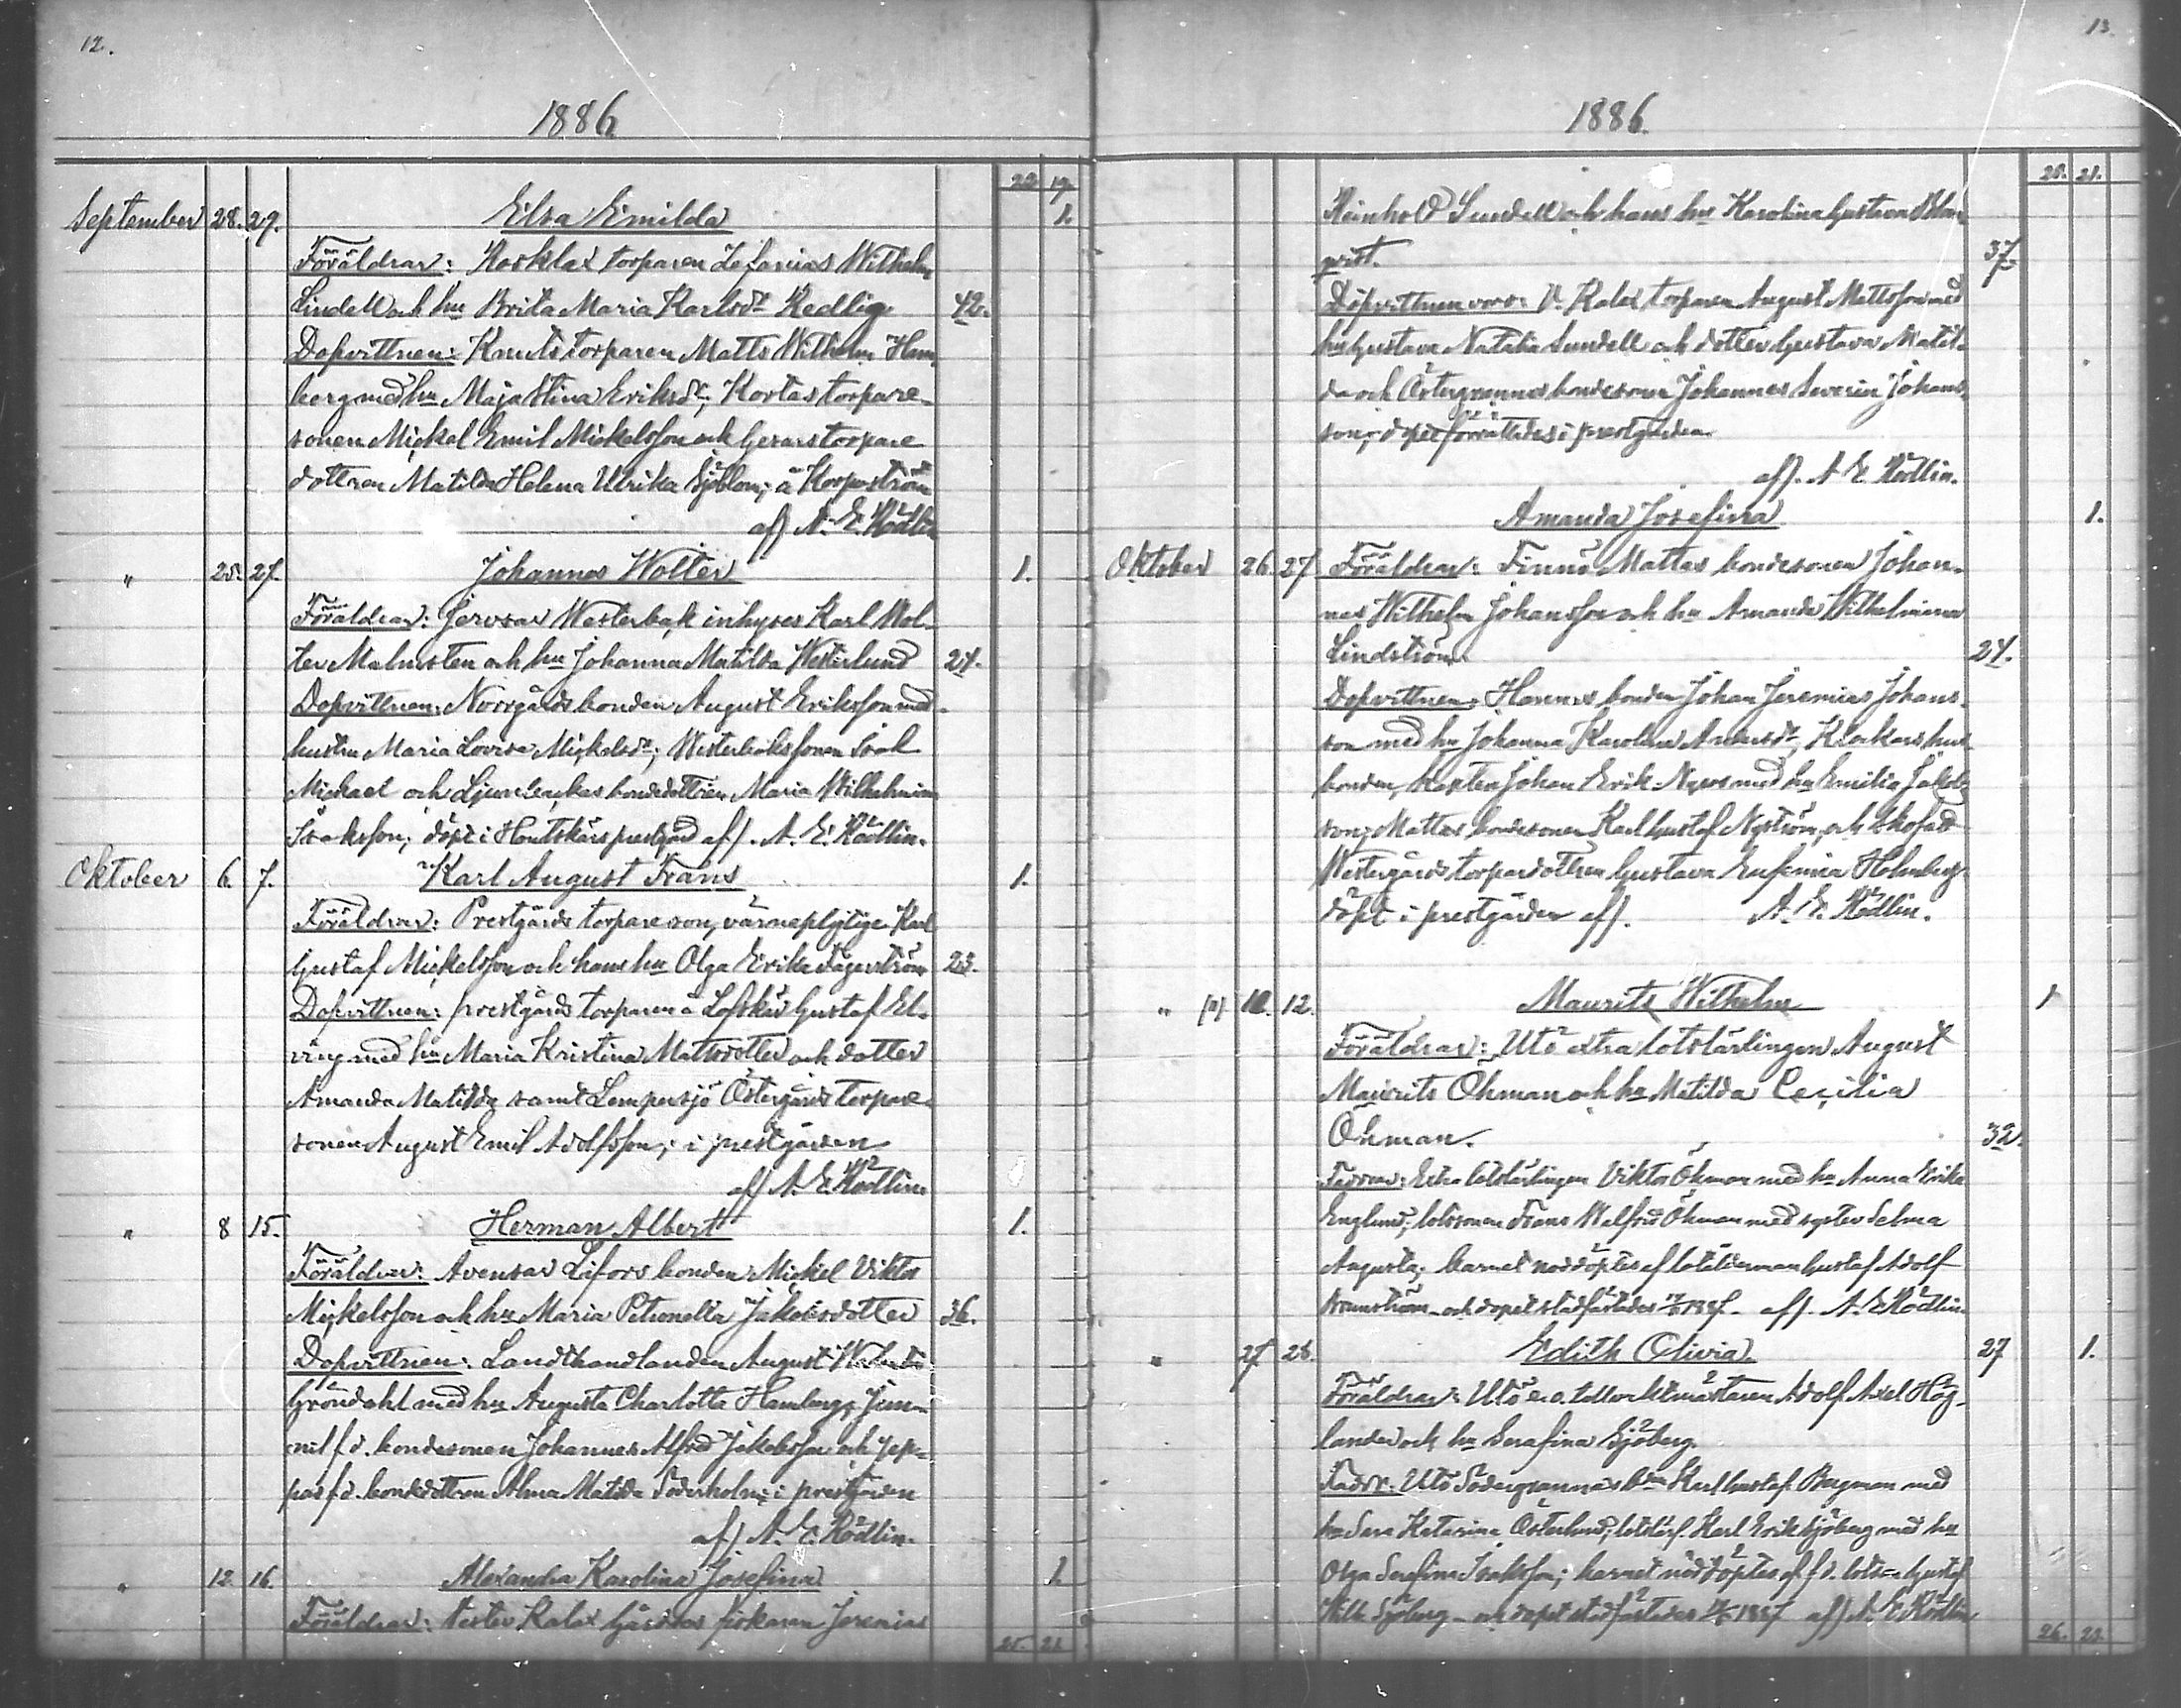 12.
1886
22. 19.
September 28. 29. Elsa Emilda 1.
Föräldrar: Rosklax torparen Zefanias Wilhelm
Lindell och hu Brita Maria Karlsdr Redlig 42.
Dopvittnen: Knuts torparen Matts Wilhelm Ham
berg med hu Maja Stina Eriksdr, Kortas torpare-
sonen Mickel Emil Mickelsson och torpare
dottren Matilda Helena Ulrika Sjöblom; å Korpoström
af A. E. Rödlin
" 25. 27. Johannes Wolter 1.
Föräldrar: Westerbak inhyses Karl Wol-
ter Malmsten och hu Johanna Matilda Westerlund 24.
Dopvittnen: Norrgårds bonden August Eriksson med
hustru Maria Lovisa Mickelsdr; sonen
Mickael och bondedottren Maria Wilhelmina
Isaksson; döpt i Houtskärs prestgård af A. E. Rödlin.
Oktober 6. 7. Karl August Frans 1.
Föräldrar: Prestgårds torpareson, värnepligtige Karl
Gustaf Mickelsson och hans hu Olga Erika Fagerström 23.
Dopvittnen: prestgårds torparen å Gustaf El-
ving med hu Maria Kristina Mattsdotter och dotter
Amanda Matilda samt Lempersjö Östergårds torpare-
sonen August Emil Adolfsson; i prestgården
af A. E. Rödlin
" 8 15. Herman Albert 1.
Föräldrar: Avensar Lifors bonden Mickel Viktor
Mickelsson och hu Maria Petronella Jakobsdotter 36.
Dopvittnen: Landthandlanden August
Gröndahl med hu Augusta Charlotta Hamberg,
f.d. bondesonen Johannes Alfred Jakobsson och
f.d. bondedottren Alma Matilda Söderholm; i prestgården
af A. E. Rödlin.
" 12 16. Alexandra Karolina Josefina 1.
Föräldrar: Vester Kalax fiskaren Jeremias
25. 21.
13.
1886.
25. 21.
Reinhold Sundell och hans hu Karolina Gustava Blom-
qvist. 37
Dopvittnen voro: V. Kalax torparen August Mattsson med
hu Gustava Natalia Sundell och dotter Gustava Matil-
da och Östergrannas bondesonen Johannes Severin Johans-
son; dopet förrättades i prestgården
af A. E. Rödlin.
Amanda Josefina 1.
Oktober 26. 27 Föräldrar: Finnö Mattas bondesonen Johan-
nes Wilhelm Johansson och hu Amanda Wilhelmina
Lindström 24.
Dopvittnen: Hannus bonden Johan Jeremias Johans-
son med hu Johanna Karolina Andersdr, Klockars hus-
bonden, Johan Erik med hu Emilia Jakobs
son; Mattas bondesonen Karl Gustaf Nyström, och
Westergårds torparedottren Gustava Eufemia Holmberg
döpt i prestgården af A. E. Rödlin.
" 10. 12. Maurits Wilhelm 1
Föräldrar: Utö extra lotslärlingen August
Maurits Öhman och hu Matilda Cecilia
Öhman. 32.
Faddrar: Extra lotslärlingen Viktor Öhman med hu Anna Erika
Englund; lotssonen Frans Walfrid Öhman med syster Selma
Augusta; barnet nöddöptes af lotsålderman Gustaf Adolf
och dopet stadfästades 1887 af A. E. Rödlin
" 27 28. Edith Olivia. 27 1.
Föräldrar: Utö e.o. tullvaktmästaren Adolf Axel Hög-
lander och hu Serafina Sjöberg.
Faddr: Utö Södergrannas bdn Karl Gustaf Bergman med
hu Sara Katarina Österlund; lotslärl. Karl Erik Sjöberg med hu
Olga Serafina Isaksson; barnet nöddöptes af f.d. lotsen Gustaf
Wilh. Sjöberg och dopet stadfästades 1887 af A. E. Rödlin
26. 23.